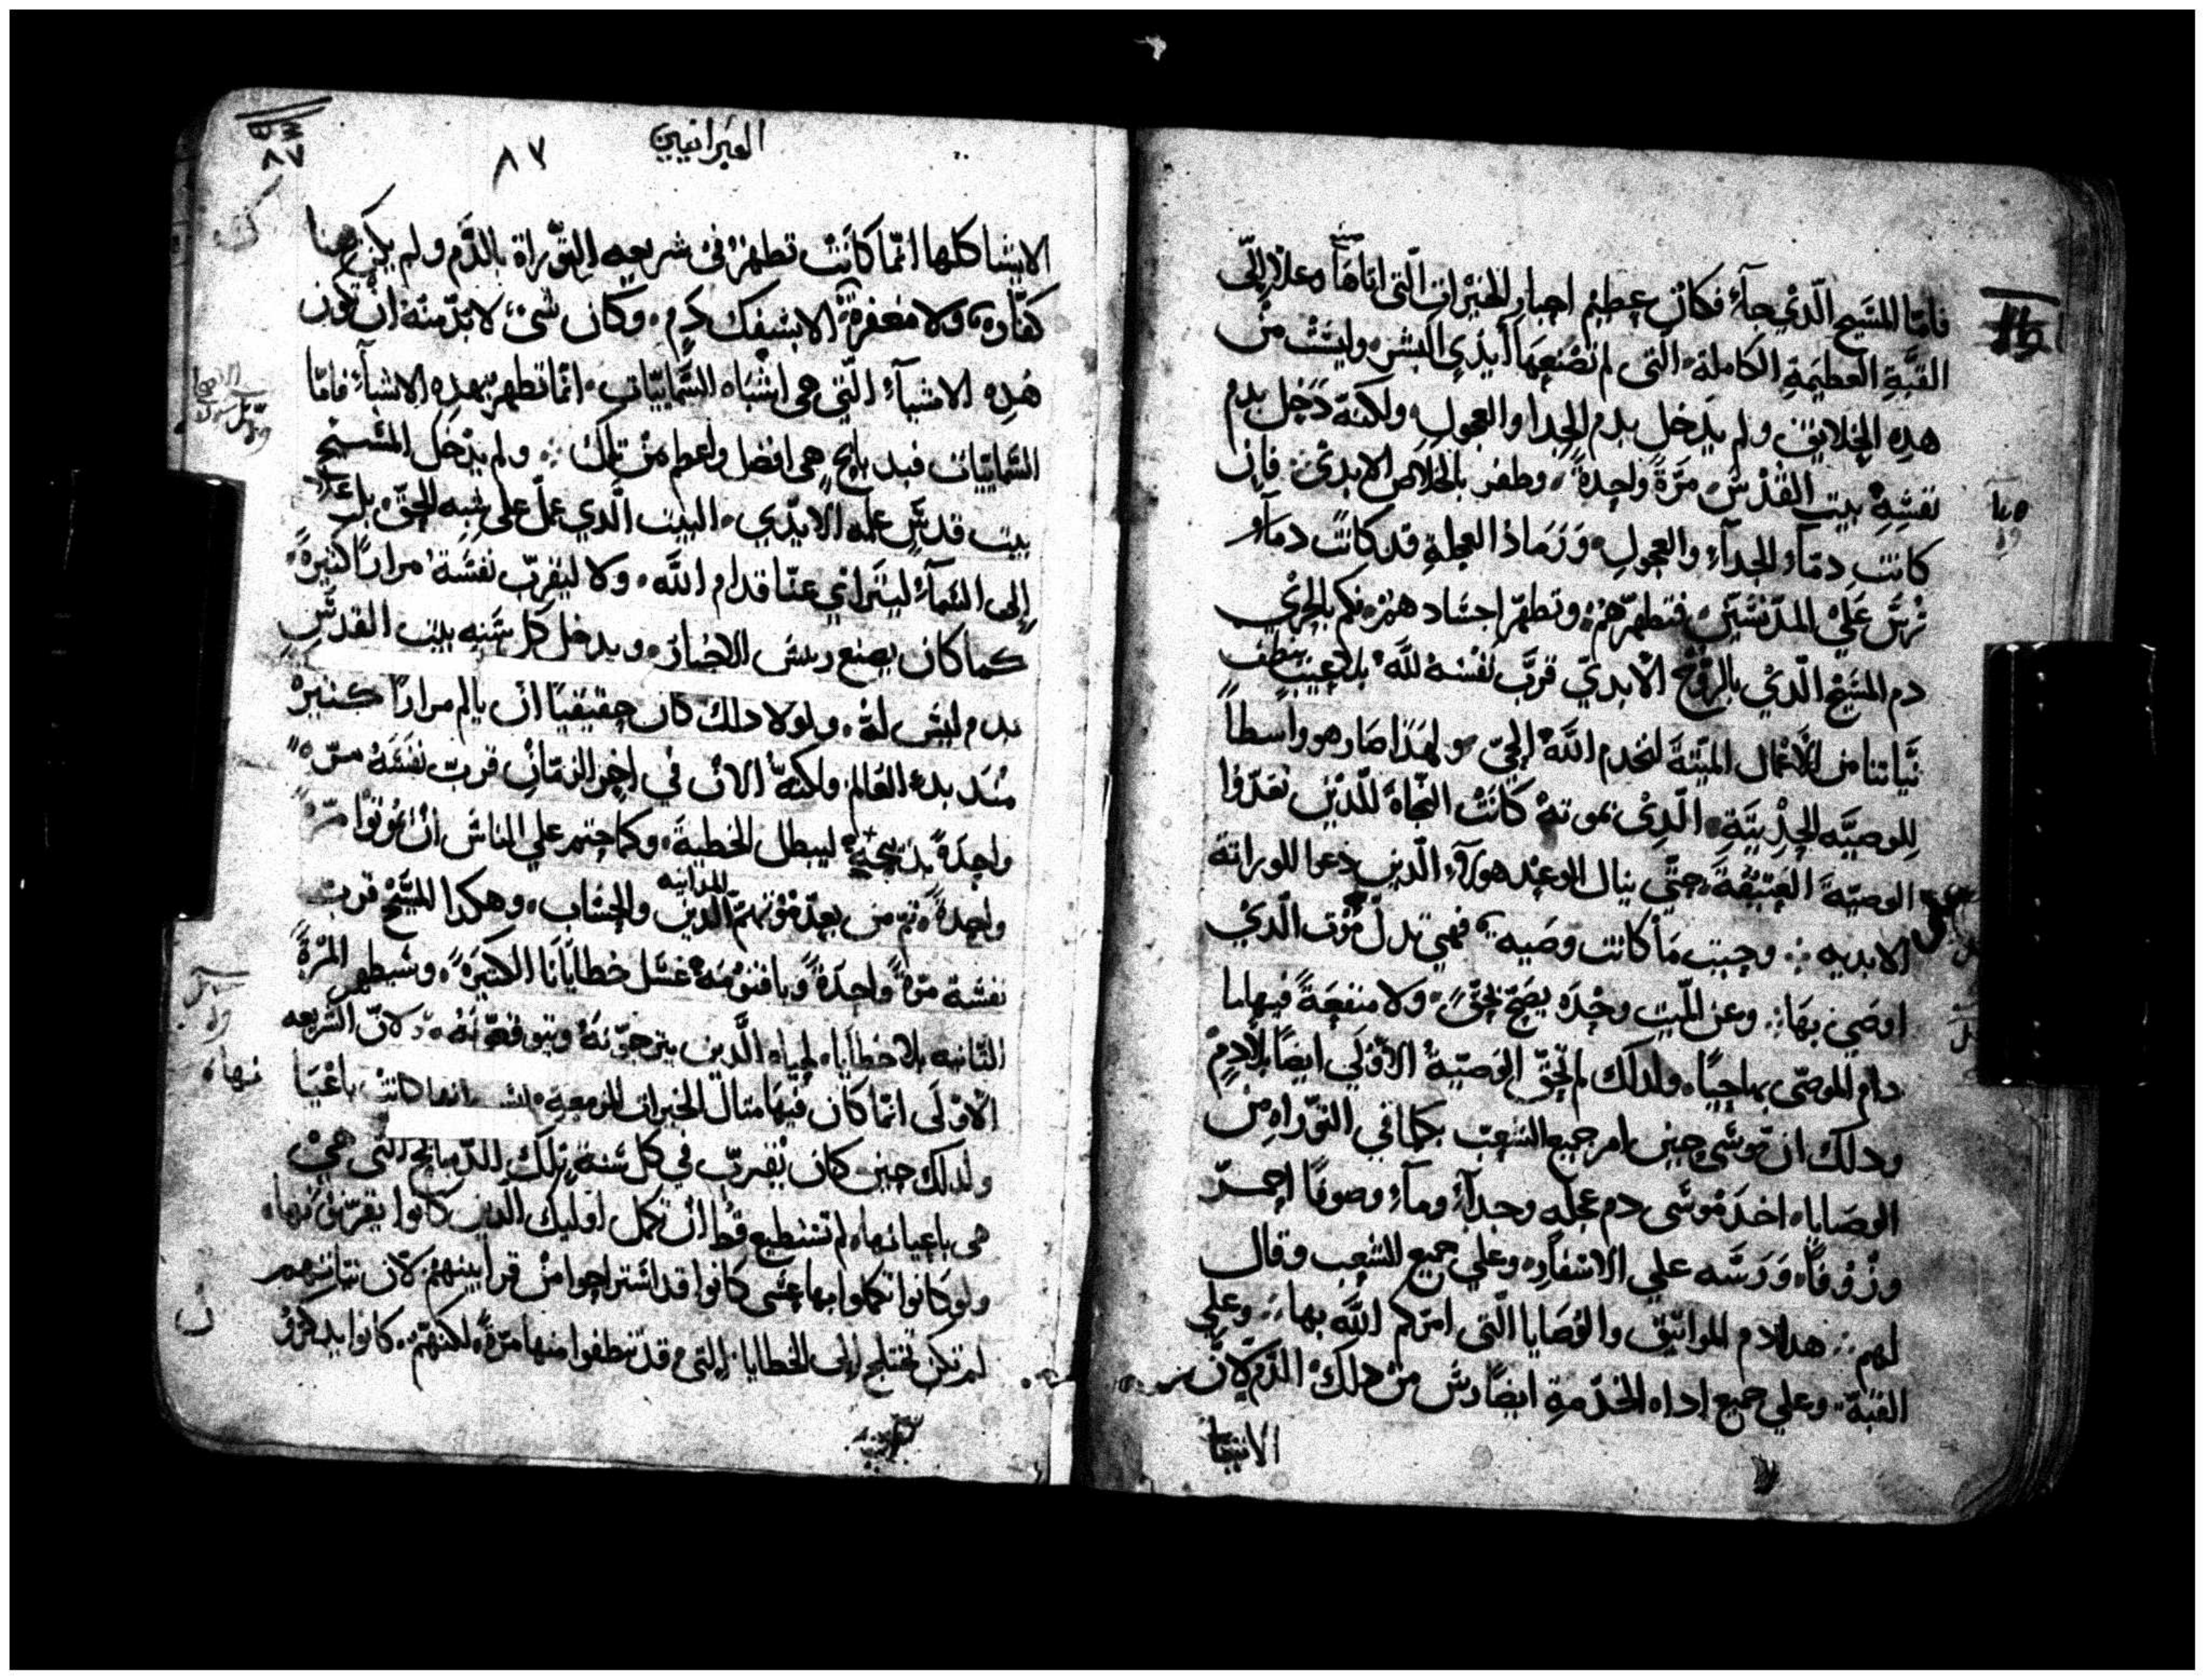 فامّا المسَيح الّذيْ جآءَ فكان عظيم احبار الخيْرات الّتى اتاهَا وعلا إلى
القبَّةِ العَظيمَةِ الكاملة، التى لم تصْنعهَا أيْدِى البشر، وليسَتْ منْ
هدِه الخلايق ولم يدخل بدم الجدا والعجولِ ولكنهُ دَخل بدمْ
نفسِهِ بيت القدْسْ مَرّةً واحِدةً، وظفر بالخلاص الابدىْ. فان
كانت دمآء الجدآءِ والعجولِ، وَرَمَادَ العجلةِ قد كانَت دمآء
تُرشّ عَلَيْ المدنسَيَنْ فتطهرّهُمْ، وتطهرّ اجسَادهمْ فكم بالحرْيِ
دم المسَيْح الّذيْ بالروُحْ الابديّ قرَّبَ نَفْسَهُ للهَ بلا عَيبٍ ينظف
نيّاتنا من الاعْمال الميّتةِ لنخدم اللهَ الحيّ ولهَذا صَار هو واسطاً
للوصيَّه الحِدِيثِةِ، الّدِىْ بموتهْ كَانَتْ النجّاهُ للّدْين تعَدّوا
الوصيّة العَتيقة، حتّي ينال الوعْد هولآءِ الّدين دُعوا للوراتة
الابديه ∴ وحيت مَا كانت وصَيه، فهي تدلّ مَوْت الّديْ
اوصَىَ بهَا ∴ وعن الميت وحْدَه يصَحّ لحقً، وَلا منفعةً فيها ما
دام الموصّى بها حيًا، ولدلك لم تحقّ الوَصيّةُ الاوْلَي ايضًا بلا دمٍ
ودلك انّ موسَى حين امر جميع الشعب بكلما في التوّراهِ من
الوصَايا، اخدَ مُوسَى دم عجله وجدآءً ومآءً وصوفًا احمَرّ
وزُوْفاً، وَرَشه علي الاسْفاَر، وعلي جميع الشعب وقال
لهم ∴ هدا دم المواتيق والوُصَايا الّتى امرَكم اللهَ بها ∴ وعلي
القبّة، وعلي جميع اداه الخدْمةِ ايضًا رش منْ دلك الدّم لانّ
الاشيا
العبرانيين
٨٧
٨٧
الاشيا كلها انّما كَانَتْ تطهرْ فى شريعه التوّراة بالدَّم ولم يكن هنا
كفّاره، ولا مَغفرةْ الا بسَفك دمٍ، وكان شىْ لابدّ منهُ انْ تكون
هَدِه الاشيآءُ الّتي هى اشْبَاه السَّماييّات، انّما تطهرّ بهدِه الاشيآءُ فامّا
السَّماييّات فبدبايح هى افضل واعظم منْ تلك ∴ ولم يدْخل المسَيْح
بيت قدسٍْ عمله الايْدي، البيت الّدي عُملّ على شبه الحقّ، بل علا
إلى السَّمآءُ ليترآي عنّا قدام اللهَ، ولا ليقرب نفسَهُ مرارًا كثيرةً،
كما كان يصنع ريسَ الاحبار، ويدخل كل سَنه بيت القدْسِ
بدم ليسَ لهُ، ولولا دلك كان حقيقيًا ان يالم مرارًا كثيرْ
مُند بدءِ العَالم، ولكنهُ الان في اخر الزمَان قرب نفسَهُ مرّه
واحِدَةً بدبيحتِهِ ليبطل الخطية، وكما حتم علي الناسَ انْ يمُوتوا مرّه
واحدةً، ثم من بعدْ موْتهمّ المداينه والحسَاب، وهكدا المسَيْح قرب
نفسَه مرّةً واحِدَةً وباقنومهْ غَسَل خطايَانا الكثيرَة، وسَيظهر المرّةَ
التانيه بلا خطايا، لحياه الَّدين يترجوّنهُ ويتوقعوّنهُ، لانّ الشريعه
الاوْلَى انّما كان فيهَا متال الخيرات المزمعةِ، ليسَ انها كانتْ باعْيَا
نها،
ولدلك حين كان يُقرب في كل سَنة تلك الدّبايح الّتى هيْ
هى باعيانها، لم تسْتطيع قطُ انْ تكمل اوليك الّدين كانوا يقربوُنها،
ولو كَانوا تكملوا بها عسَى كَانوا قد اسْتراحوا منْ قرابينهمْ لانّ نياتهم
لم تكن تحتلج إلى الخطايا، التى قد تنظفوا منها مرّةً، لكنهّمْ كانوا يدكرُوْ